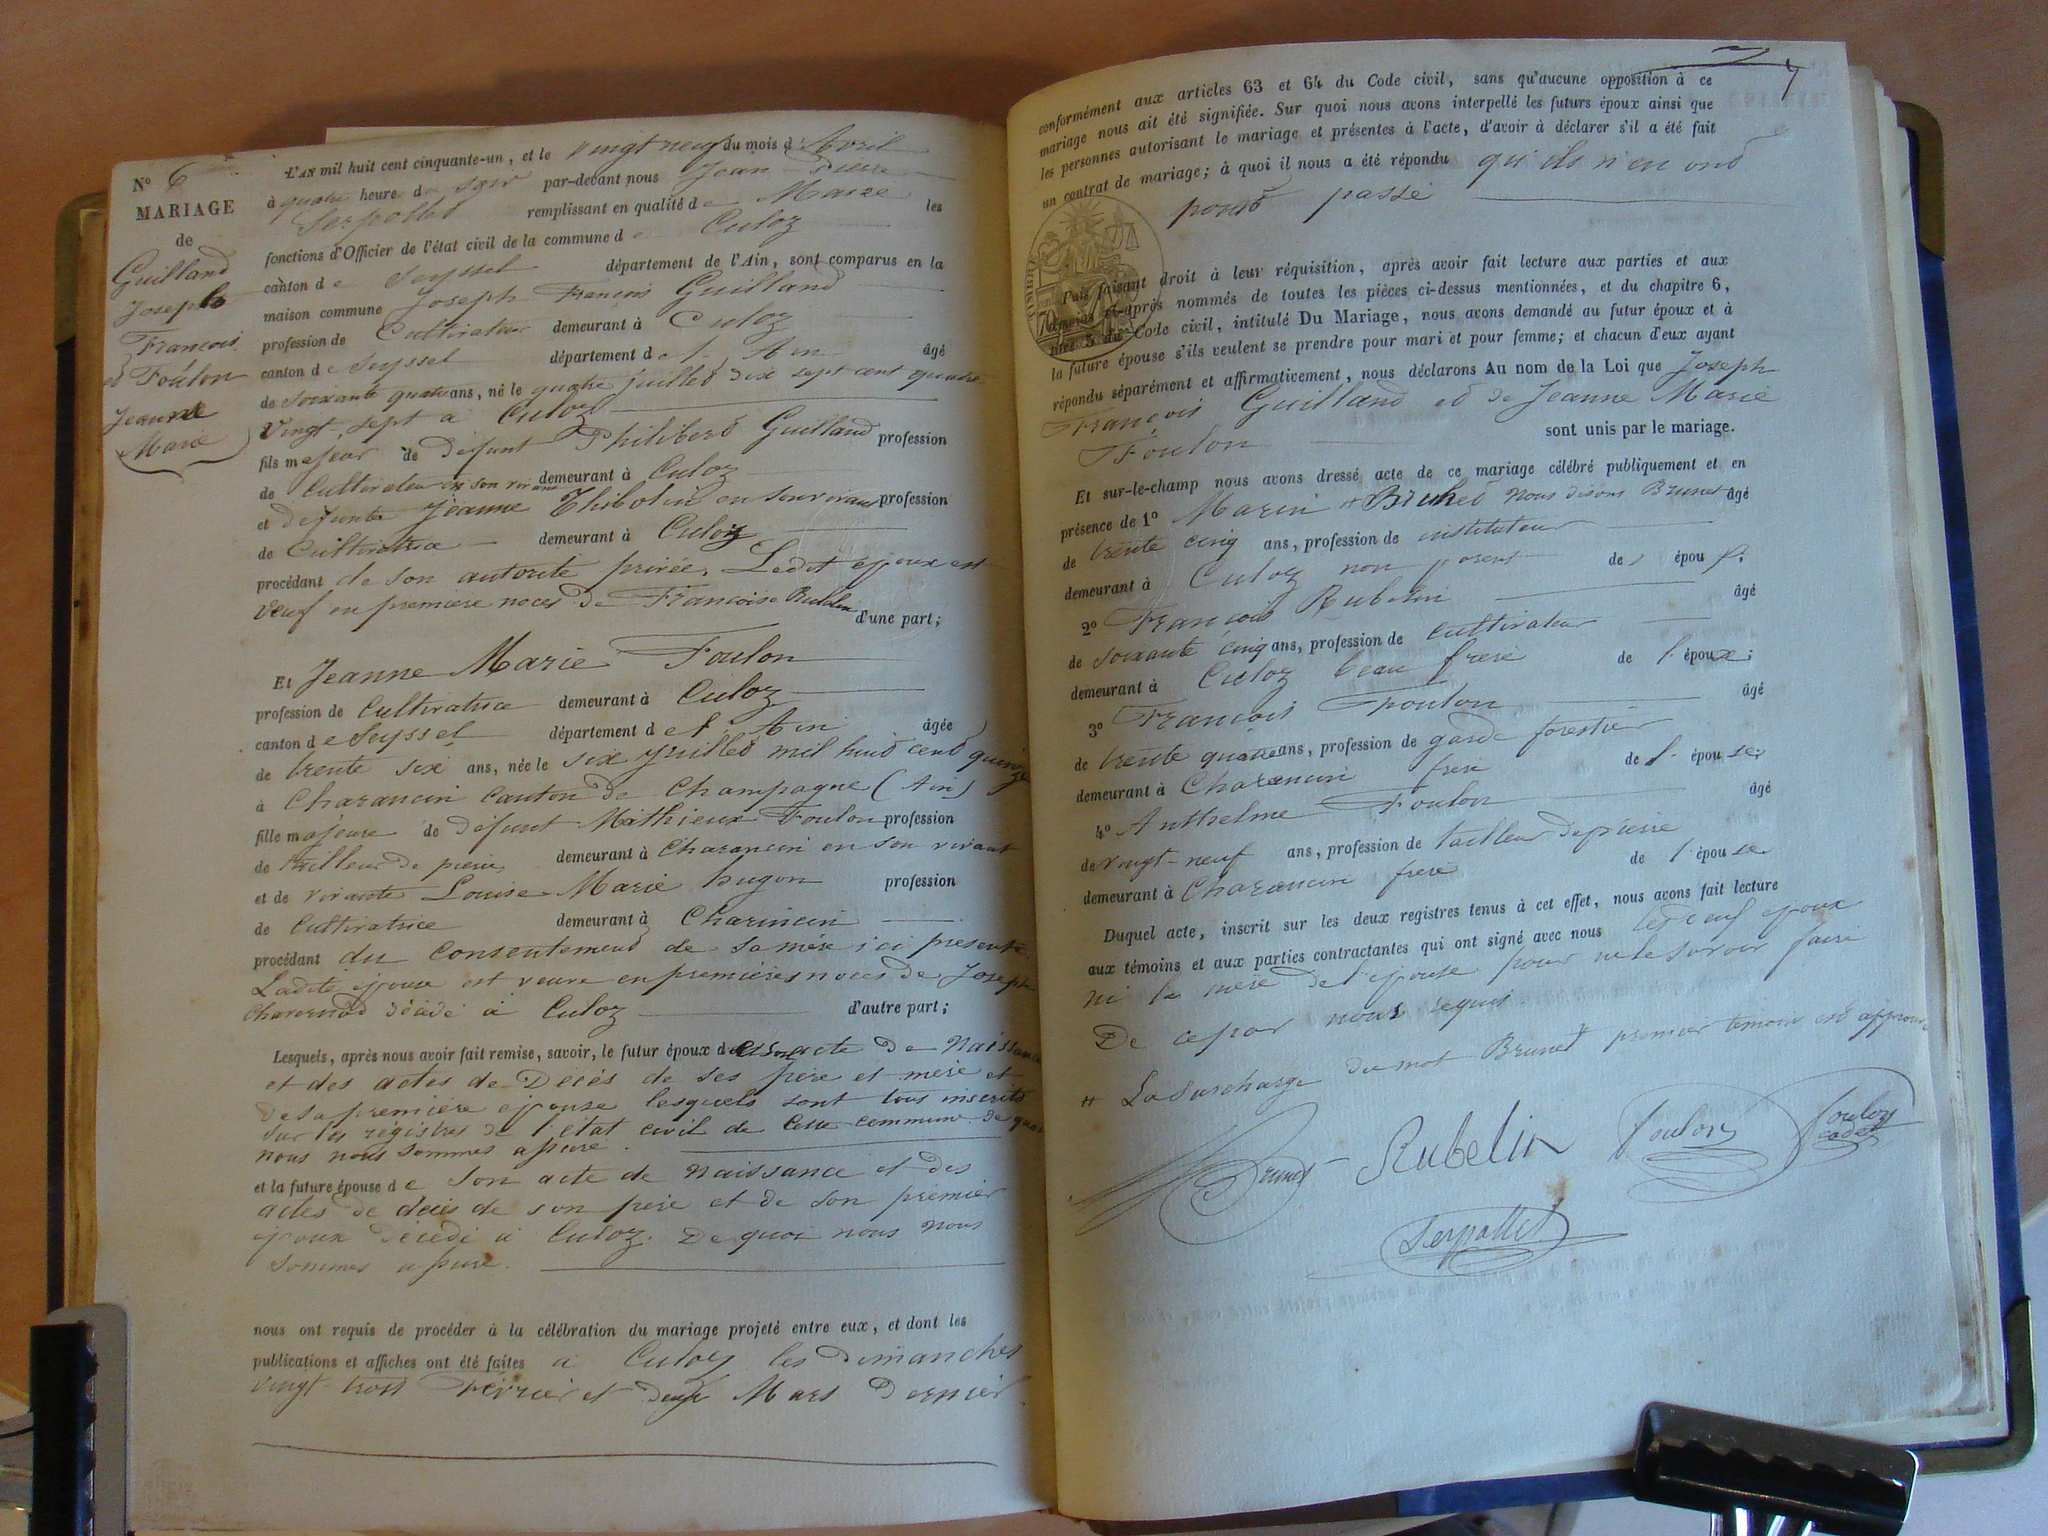 N° 6
MARIAGE
de
Guilland
Joseph
François
et Foulon
Jeanne
Marie
L'AN mil huit cent cinquante-un, et le vingt neuf du mois d'Avril
à quatre heure du soir par-devant nous Jean Pierre
Serpollet remplissant en qualité de Maire les
fonctions d'Officier de l'état civil de la commune de Culoz
canton de Seyssel département de l'Ain, sont comparus en la
maison commune Joseph François Guilland
profession de Cultivateur demeurant à Culoz
canton de Seyssel département de l'Ain âgé
de soixante quatre ans, né le quatre juillet dix sept cent quatre
vingt sept à Culoz
fils majeur de defunt Philibert Guilland profession
de Cultivateur en son vivant demeurant à Culoz
et defunte Jeanne Thibolin en son vivant profession
de Cultivatrice demeurant à Culoz
procédant de son autorité privée. Ledit époux est
veuf en premiere noces de Francoise Rubelin d'une part;
Et Jeanne Marie Foulon
profession de Cultivatrice demeurant à Culoz
canton de Seyssel département de l'Ain âgée
de trente six ans, née le six juillet mil huit cent quinze
à Charancin canton de Champagne (Ain)
fille majeure de défunt Mathieux Foulon profession
de tailleur de pierre demeurant à Charancin en son vivant
et de vivante Louise Marie hugon profession
de Cultivatrice demeurant à Charincin
procédant du consentement de sa mère ici présente.
Ladite épouse est veuve en premières noces de Joseph
décédé à Culoz d'autre part;
Lesquels, après nous avoir fait remise, savoir, le futur époux de son acte de Naissance
et des actes de Décès de ses père et mère et
de sa première épouse lesquels sont tous inscrits
sur les régistres de l'état civil de cette commune de quoi
nous nous sommes assuré.
et la future épouse de son acte de naissance et des
actes de décès de son père et de son premier
époux décédé à Culoz. De quoi nous nous
sommes assuré.
nous ont requis de procéder à la célébration du mariage projeté entre eux, et dont les
publications et affiches ont été faites à Culoz les Dimanches
vingt-trois Février et deux Mars dernier
7
conformément aux articles 63 et 64 du Code civil, sans qu'aucune opposition à ce
mariage nous ait été signifiée. Sur quoi nous avons interpellé les futurs époux ainsi que
les personnes autorisant le mariage et présentes à l'acte, d'avoir à déclarer s'il a été fait
un contrat de mariage; à quoi il nous a été répondu qu'ils n'en ont
point passé
TIMBRE
Puis faisant droit à leur réquisition, après avoir fait lecture aux parties et aux
témoins ci-après nommés de toutes les pièces ci-dessus mentionnées, et du chapitre 6,
titre 5 du Code civil, intitulé Du Mariage, nous avons demandé au futur époux et à
la future épouse s'ils veulent se prendre pour mari et pour femme; et chacun d'eux ayant
répondu séparément et affirmativement, nous déclarons Au nom de la Loi que Joseph
François Guilland et de Jeanne Marie
Foulon sont unis par le mariage.
Et sur-le-champ nous avons dressé acte de ce mariage célébré publiquement et en
présence de 1° Marin # Brunet nous disons Brunet âgé
de trente cinq ans, profession de instituteur
demeurant à Culoz non parent des épou x;
2° François Rubelin âgé
de soixante cinq ans, profession de cultivateur
demeurant à Culoz beau frere de l'époux;
3° François Foulon âgé
de trente quatre ans, profession de garde forestier
demeurant à Charancin frere de l'épou se;
4° Anthelme Foulon âgé
de vingt-neuf ans, profession de tailleur de pierre
demeurant à Charancin frere de l'épou se
Duquel acte, inscrit sur les deux registres tenus à cet effet, nous avons fait lecture
aux témoins et aux parties contractantes qui ont signé avec nous époux
ni la mère de l'épouse pour ne le savoir faire
De ce par nous requis
# La surcharge du mot Brunet premier temoin est approuvé
Brunet Rubelin Foulon Foulon
cadet
Serpollet